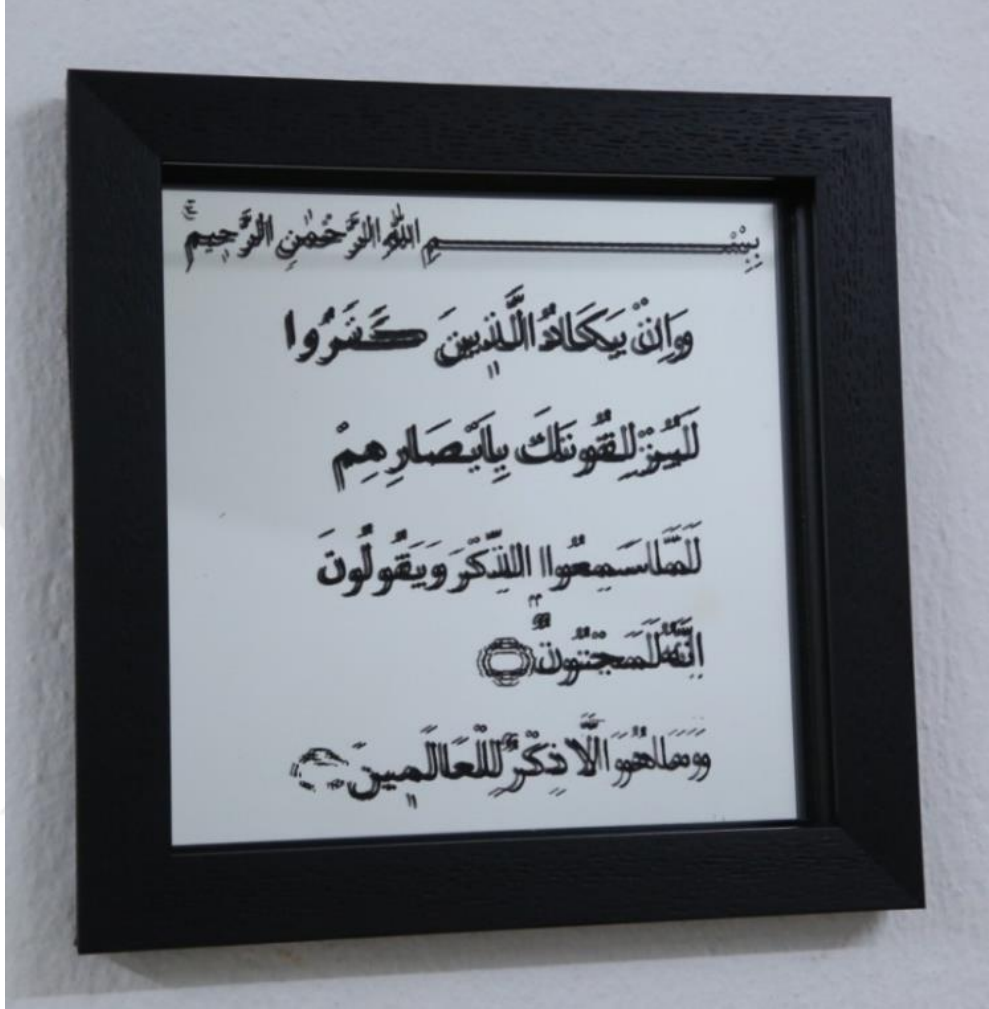 بِسْمِ اللّٰهِ الرَّحْمٰنِ الرَّحِيمِ
وَاِنْ يَكَادُ الَّذِينَ كَفَرُوا
لَيُزْلِقُونَكَ بِاَبْصَارِهِمْ
لَمَّا سَمِعُوا الذِّكْرَ وَيَقُولُونَ
اِنَّهُ لَمَجْنُونٌ
وَمَا هُوَ اِلَّا ذِكْرٌ لِلْعَالَمِينَ